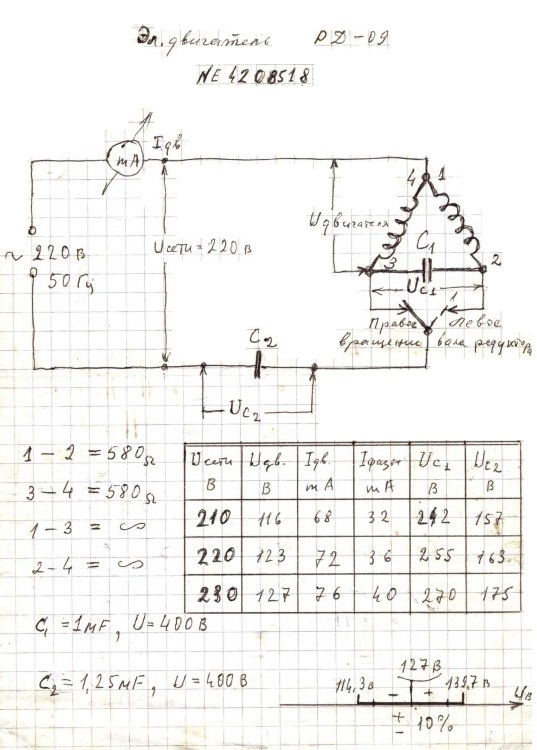 Эл. двигатель РД-09
NE 4208518
mA
Iдв
~ 220 в
50 Гц
Uсети = 220 в
Uдвигателя
4 1
C1
3 2
Uc1
1
Правое левое
вращение вала редуктора
C2
Uc2
1 – 2 = 580Ω
3 – 4 = 580Ω
1 – 3 = ∞
2 – 4 = ∞
C1 = 1мF, U = 400 В
C2 = 1,25мF, U = 400 В
Uсети В Uдв. В Iдв. mA Iфазы mA Uc1 В Uc2 В
210 116 68 32 242 157
220 123 72 36 255 163
230 127 76 40 270 175
127 В
114,3в – + 139,7 В
± 10%
Uв